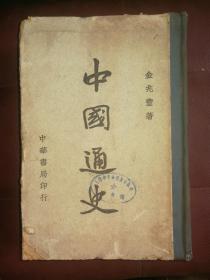 金兆豐著
中國通史
中華書局印行